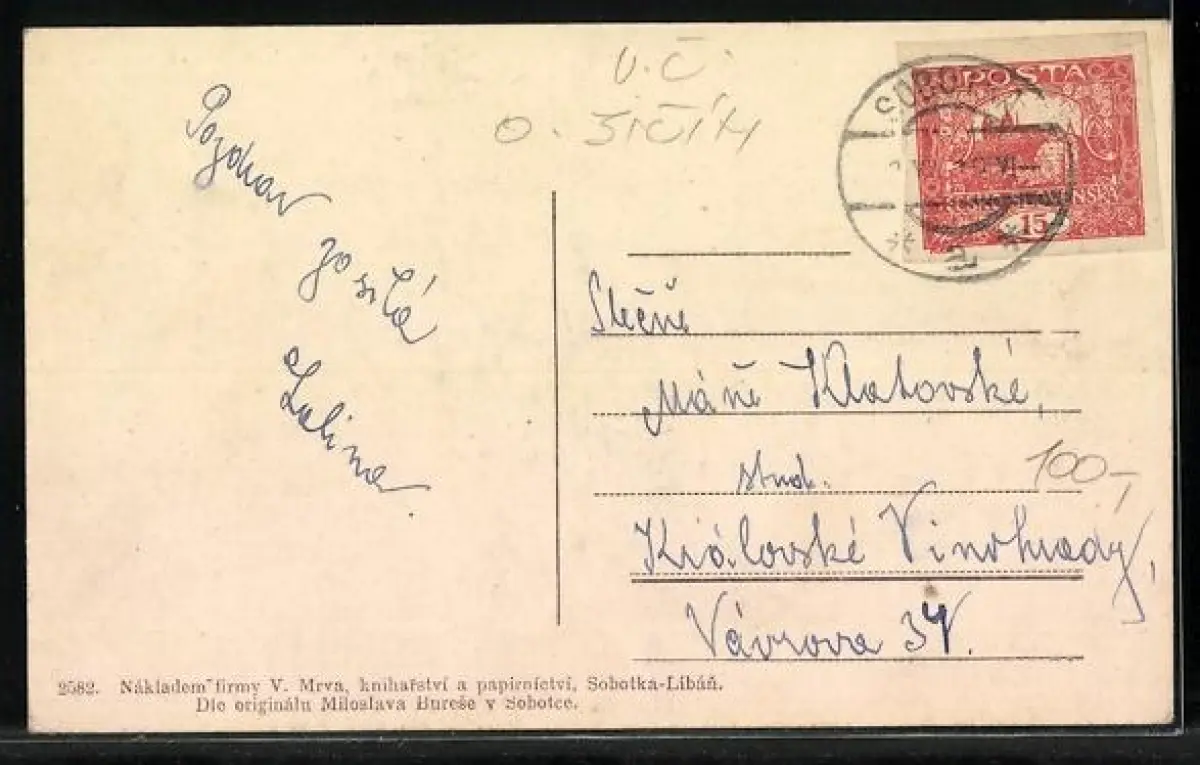 V.Č.
O. JIČÍN
POŠTA
SOBOTKA
15
Pozdrav
posílá
Slečně
Máně Klatovské,
stud.
100,-
Královské Vinohrady,
Vávrova 34.
2582. Nákladem firmy V. Mrva, knihařství a papírnictví, Sobotka-Libáň.
Dle originálu Miloslava Bureše v Sobotce.